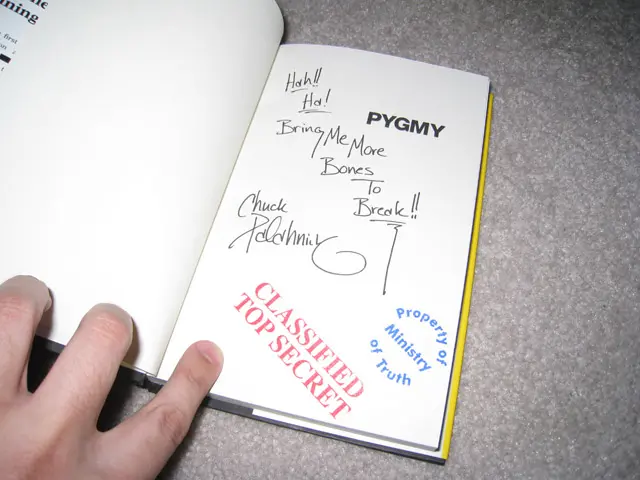 ning
first
Hah!!
Ha!
PYGMY
Bring Me More
Bones
To
Break!!
Chuck
Palahniuk
CLASSIFIED
TOP SECRET
Property of
Ministry
of Truth